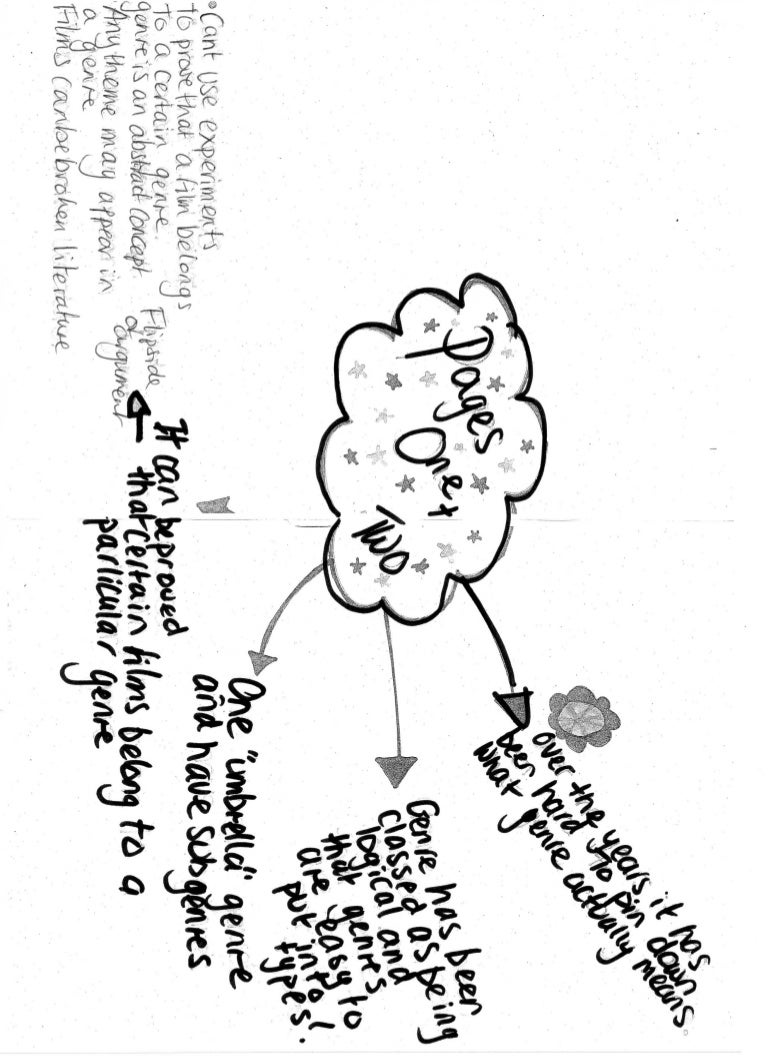 Pages
One +
Two
over the years it has
been hard to pin down
what genre actually means.
Genre has been
classed as being
logical and
that genres
are easy to
put into
types!
One "umbrella" genre
and have subgenres
It can be proved
that certain films belong to a
particular genre
Flipside
of argument
• Cant use experiments
to prove that a film belongs
to a certain genre.
genre is an abstract concept
Any theme may appear in
a genre
Films can be broken literature